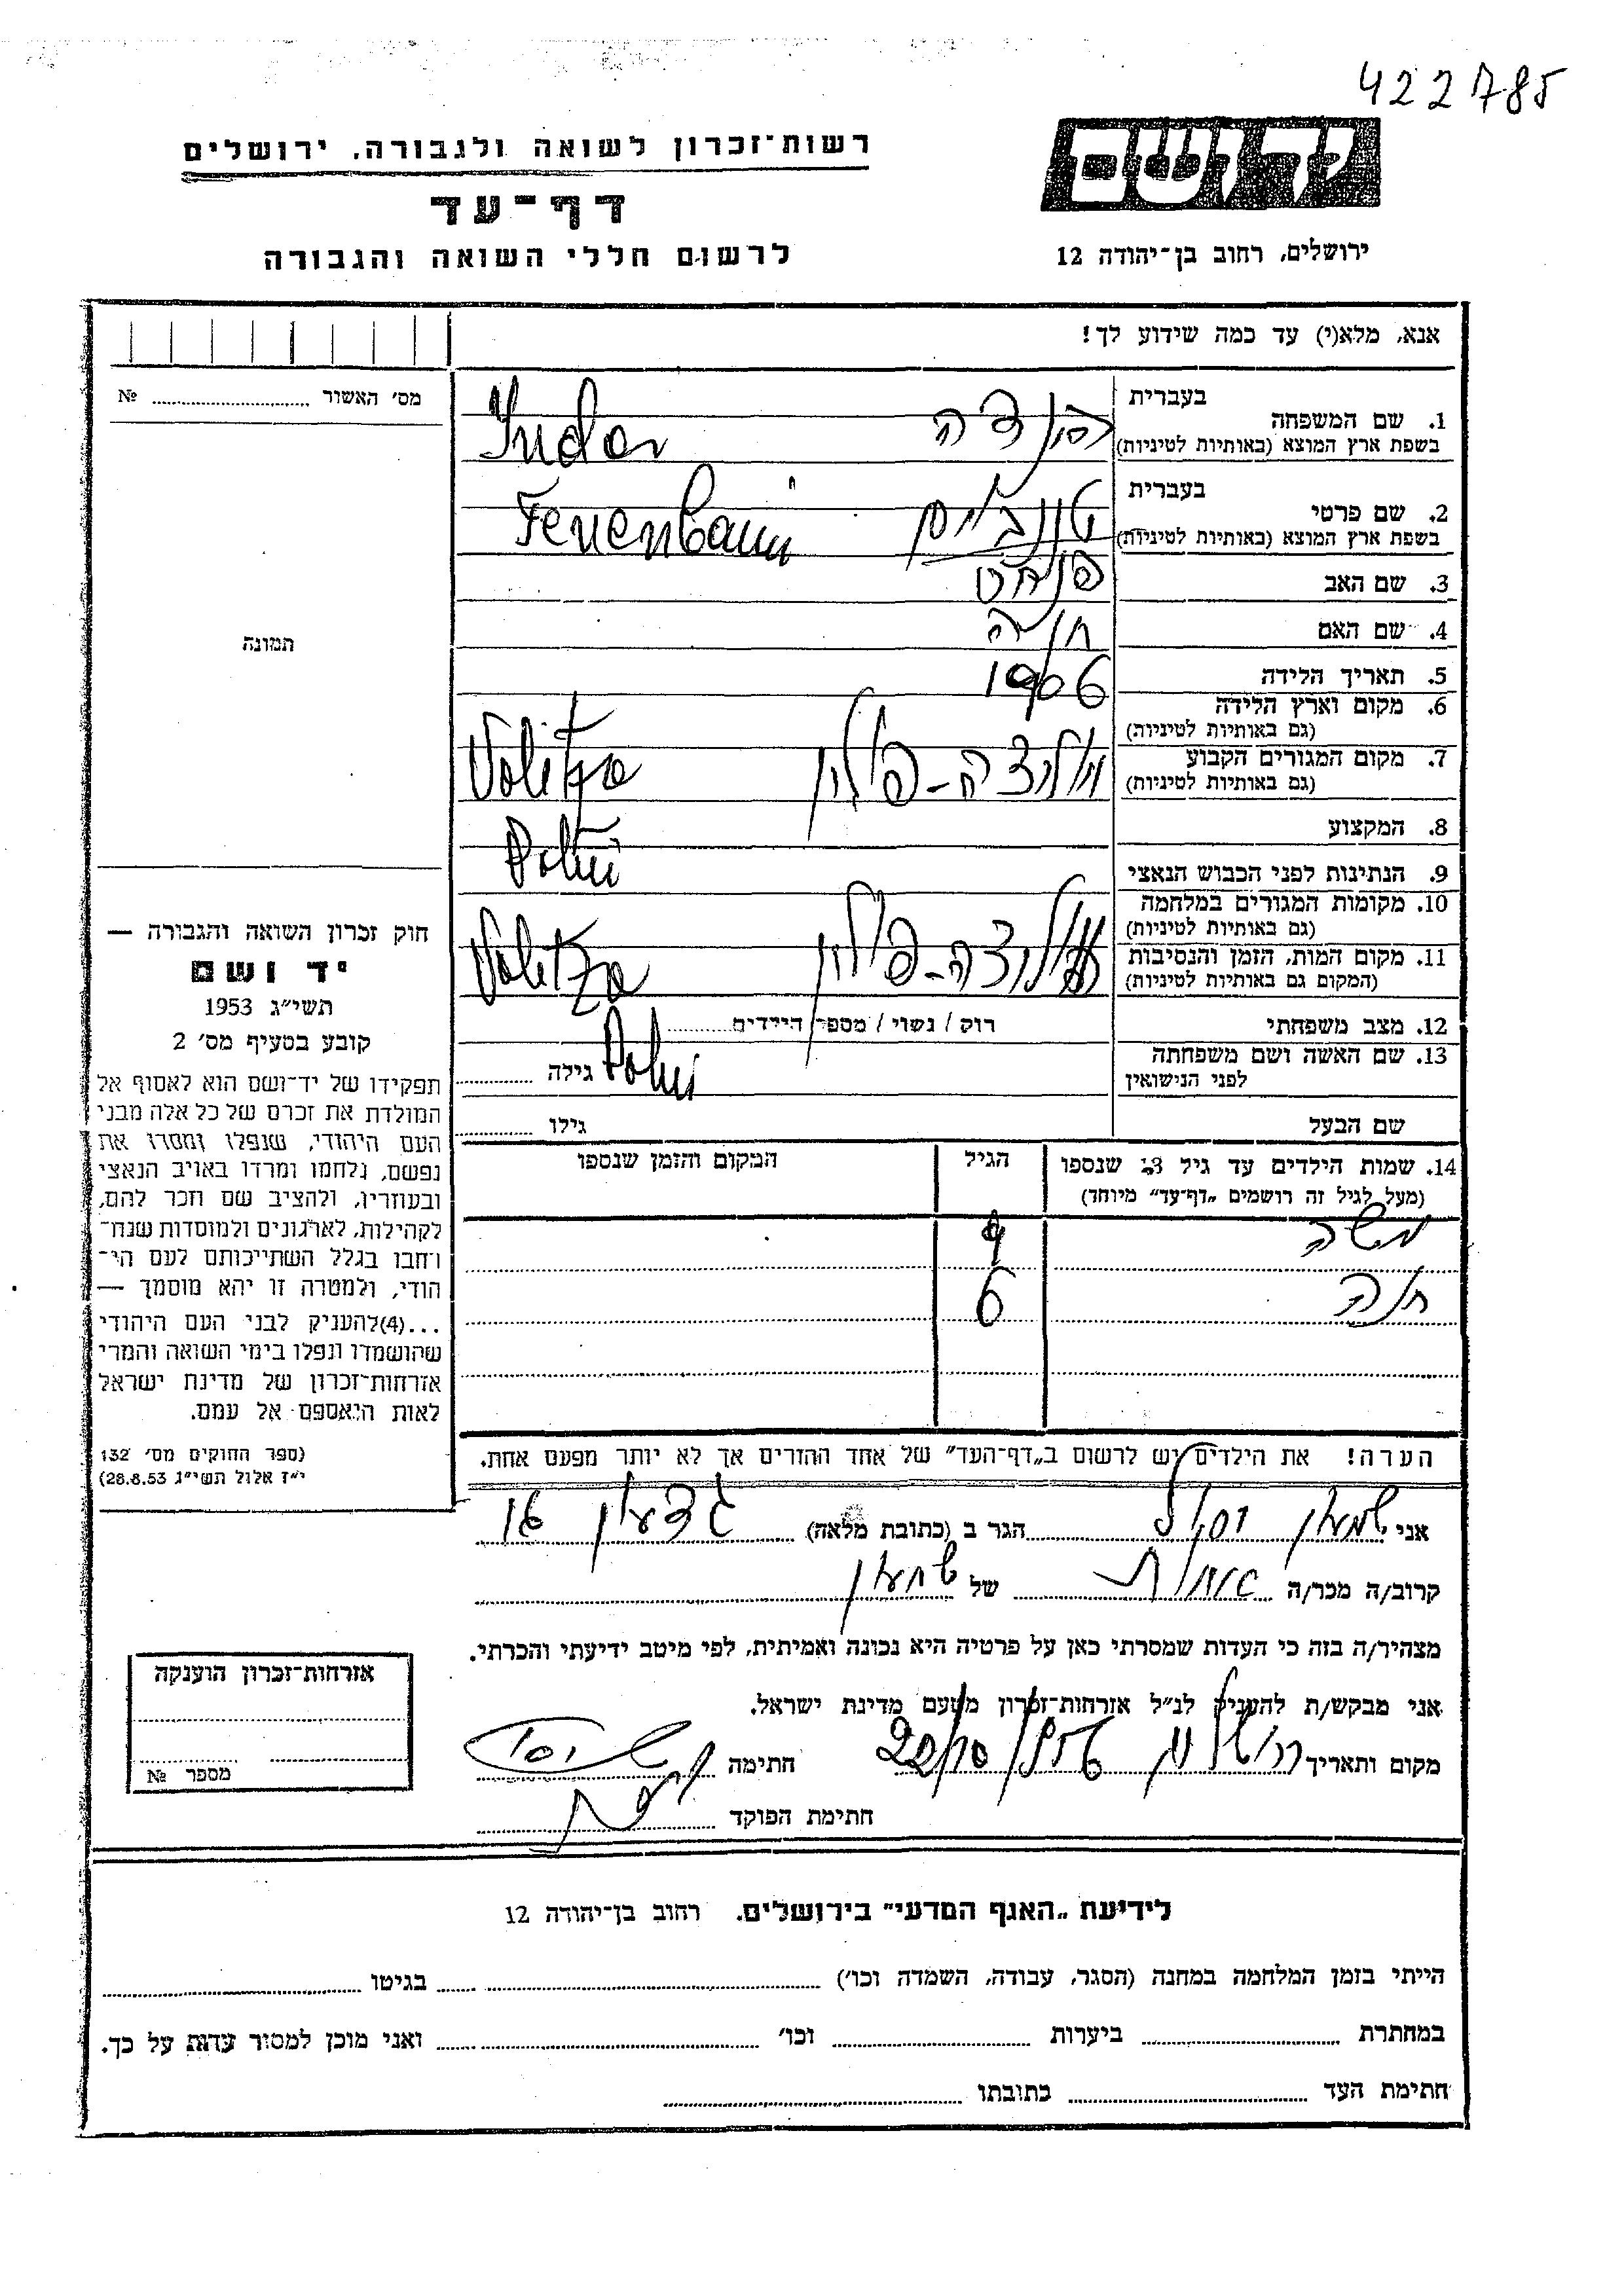 422785
רשות־זכרון לשואה ולגבורה, ירושלים
דף־עד
לרשום חללי השואה והגבורה
יד ושם
ירושלים, רחוב בן־יהודה 12
אנא, מלא(י) עד כמה שידוע לך!
מס׳ האשור № 
בעברית
1. שם המשפחה
בשפת ארץ המוצא (באותיות לטיניות)
בעברית
2. שם פרטי
בשפת ארץ המוצא (באותיות לטיניות)
Tenenbaum
3. שם האב
4. שם האם חיה
5. תאריך הלידה 1906
6. מקום וארץ הלידה
(גם באותיות לטיניות)
7. מקום המגורים הקבוע
(גם באותיות לטיניות)
פולין Volitza
8. המקצוע
9. הנתינות לפני הכבוש הנאצי
10. מקומות המגורים במלחמה
(גם באותיות לטיניות)
11. מקום המות, הזמן והנסיבות
(המקום גם באותיות לטיניות)
פולין Volitza
12. מצב משפחתי רוק / נשוי / מספר הילדים
13. שם האשה ושם משפחתה
לפני הנישואין
גילה
שם הבעל גילו
תמונה
חוק זכרון השואה והגבורה —
יד ושם
תשי״ג 1953
קובע בסעיף מס׳ 2
תפקידו של יד־ושם הוא לאסוף אל
המולדת את זכרם של כל אלה מבני
העם היהודי, שנפלו ומסרו את
נפשם, נלחמו ומרדו באויב הנאצי
ובעוזריו, ולהציב שם וזכר להם,
לקהילות, לארגונים ולמוסדות שנח־
רבו בגלל השתייכותם לעם הי־
הודי, ולמטרה זו יהא מוסמך —
...(4)להעניק לבני העם היהודי
שהושמדו ונפלו בימי השואה והמרי
אזרחות־זכרון של מדינת ישראל
לאות היאספם אל עמם.
(ספר החוקים מס׳ 132
י״ז אלול תשי״ג 28.8.53)
14. שמות הילדים עד גיל 18 שנספו
(מעל לגיל זה רושמים „דף־עד״ מיוחד)
הגיל
המקום והזמן שנספו
משה 9
חנה 6
הערה! את הילדים יש לרשום ב„דף־העד״ של אחד ההורים אך לא יותר מפעם אחת.
אני שמעון הגר ב (כתובת מלאה) גדעון 16
קרוב/ה מכר/ה של שמעון
מצהיר/ה בזה כי העדות שמסרתי כאן על פרטיה היא נכונה ואמיתית, לפי מיטב ידיעתי והכרתי.
אני מבקש/ת להעניק לנ״ל אזרחות־זכרון מטעם מדינת ישראל.
מקום ותאריך חתימה
חתימת הפוקד
אזרחות־זכרון הוענקה
מספר №
לידיעת „האגף המדעי״ בירושלים, רחוב בן־יהודה 12
הייתי בזמן המלחמה במחנה (הסגר, עבודה, השמדה וכו׳) בגיטו
במחתרת ביערות וכו׳ ואני מוכן למסור עדות על כך.
חתימת העד כתובתו